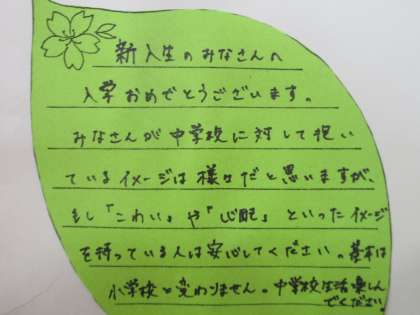 新入生のみなさんへ
入学おめでとうございます。
みなさんが中学校に対して抱い
ているイメージは様々だと思いますが、
もし「こわい」や「心配」といったイメージ
を持っている人は安心してください。基本は
小学校と変わりません。中学校生活楽しん
でください。